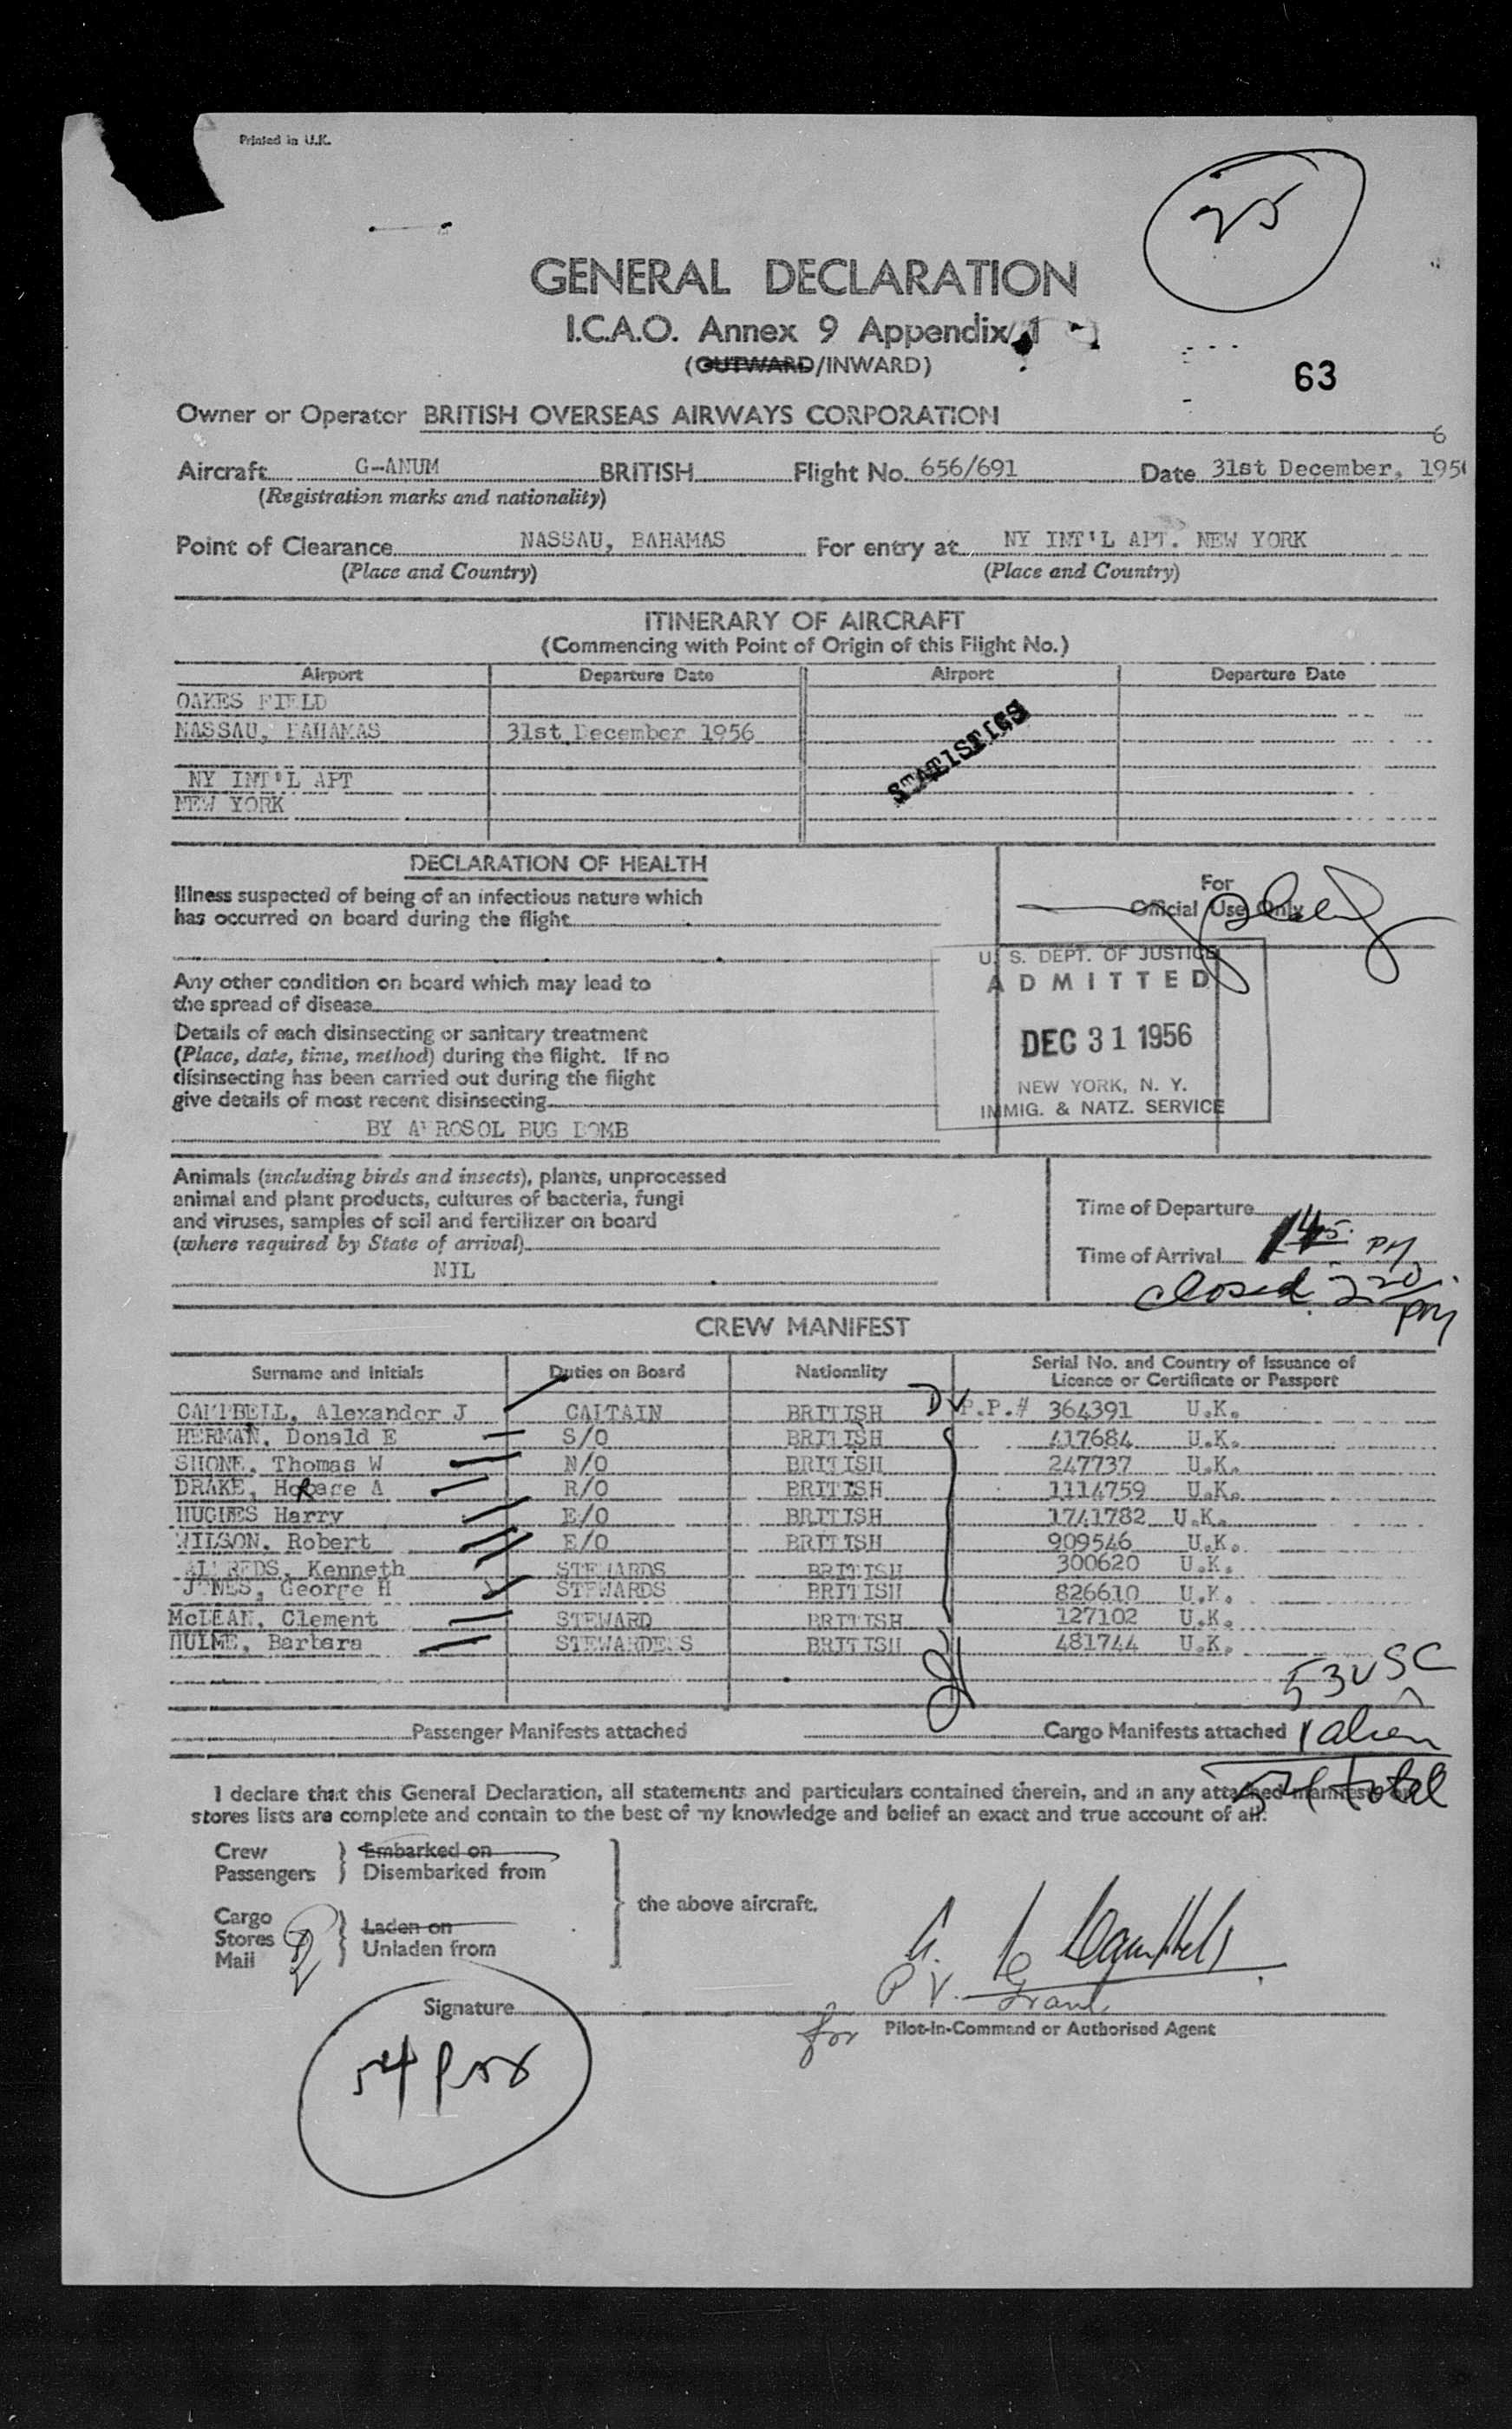 Printed in U.K.
25
GENERAL DECLARATION
I.C.A.O. Annex 9 Appendix 1
(OUTWARD/INWARD)
63
Owner or Operator BRITISH OVERSEAS AIRWAYS CORPORATION
6
Aircraft G-ANUM BRITISH Flight No. 656/691 Date 31st December, 195
(Registration marks and nationality)
Point of Clearance NASSAU, BAHAMAS For entry at NY INT'L APT. NEW YORK
(Place and Country) (Place and Country)
ITINERARY OF AIRCRAFT
(Commencing with Point of Origin of this Flight No.)
Airport Departure Date Airport Departure Date
OAKES FIELD
NASSAU, BAHAMAS 31st December 1956
STATISTICS
NY INT'L APT
NEW YORK
DECLARATION OF HEALTH
Illness suspected of being of an infectious nature which
has occurred on board during the flight
For
Official Use Only
Any other condition on board which may lead to
the spread of disease
Details of each disinsecting or sanitary treatment
(Place, date, time, method) during the flight. If no
disinsecting has been carried out during the flight
give details of most recent disinsecting
BY AEROSOL BUG BOMB
U. S. DEPT. OF JUSTICE
ADMITTED
DEC 31 1956
NEW YORK, N. Y.
IMMIG. & NATZ. SERVICE
Animals (including birds and insects), plants, unprocessed
animal and plant products, cultures of bacteria, fungi
and viruses, samples of soil and fertilizer on board
(where required by State of arrival)
NIL
Time of Departure
Time of Arrival 145 PM
closed 220 PM
CREW MANIFEST
Surname and Initials Duties on Board Nationality Serial No. and Country of Issuance of
Licence or Certificate or Passport
CAMPBELL, Alexander J CAPTAIN BRITISH P.P.# 364391 U.K.
HERMAN, Donald E S/O BRITISH 417684 U.K.
SHONE, Thomas W N/O BRITISH 247737 U.K.
DRAKE, HoRace A R/O BRITISH 1114759 U.K.
HUGHES Harry E/O BRITISH 1741782 U.K.
WILSON, Robert E/O BRITISH 909546 U.K.
ALFREDS, Kenneth STEWARDS BRITISH 300620 U.K.
JONES, George H STEWARDS BRITISH 826610 U.K.
McLEAN, Clement STEWARD BRITISH 127102 U.K.
HULME, Barbara STEWARDESS BRITISH 481744 U.K.
53 USC
Passenger Manifests attached Cargo Manifests attached 1 alien
54 total
I declare that this General Declaration, all statements and particulars contained therein, and in any attached manifests
stores lists are complete and contain to the best of my knowledge and belief an exact and true account of all:
Crew
Passengers
Embarked on
Disembarked from
the above aircraft.
Cargo
Stores
Mail
Laden on
Unladen from
Signature
P V. Grant
for Pilot-in-Command or Authorised Agent
54 psx